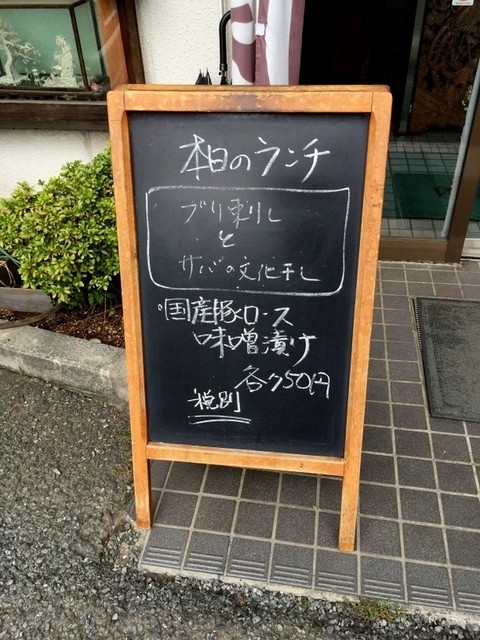 本日のランチ
ブリ刺し
と
サバの文化干し
国産豚ロース
味噌漬け
各750円
税別